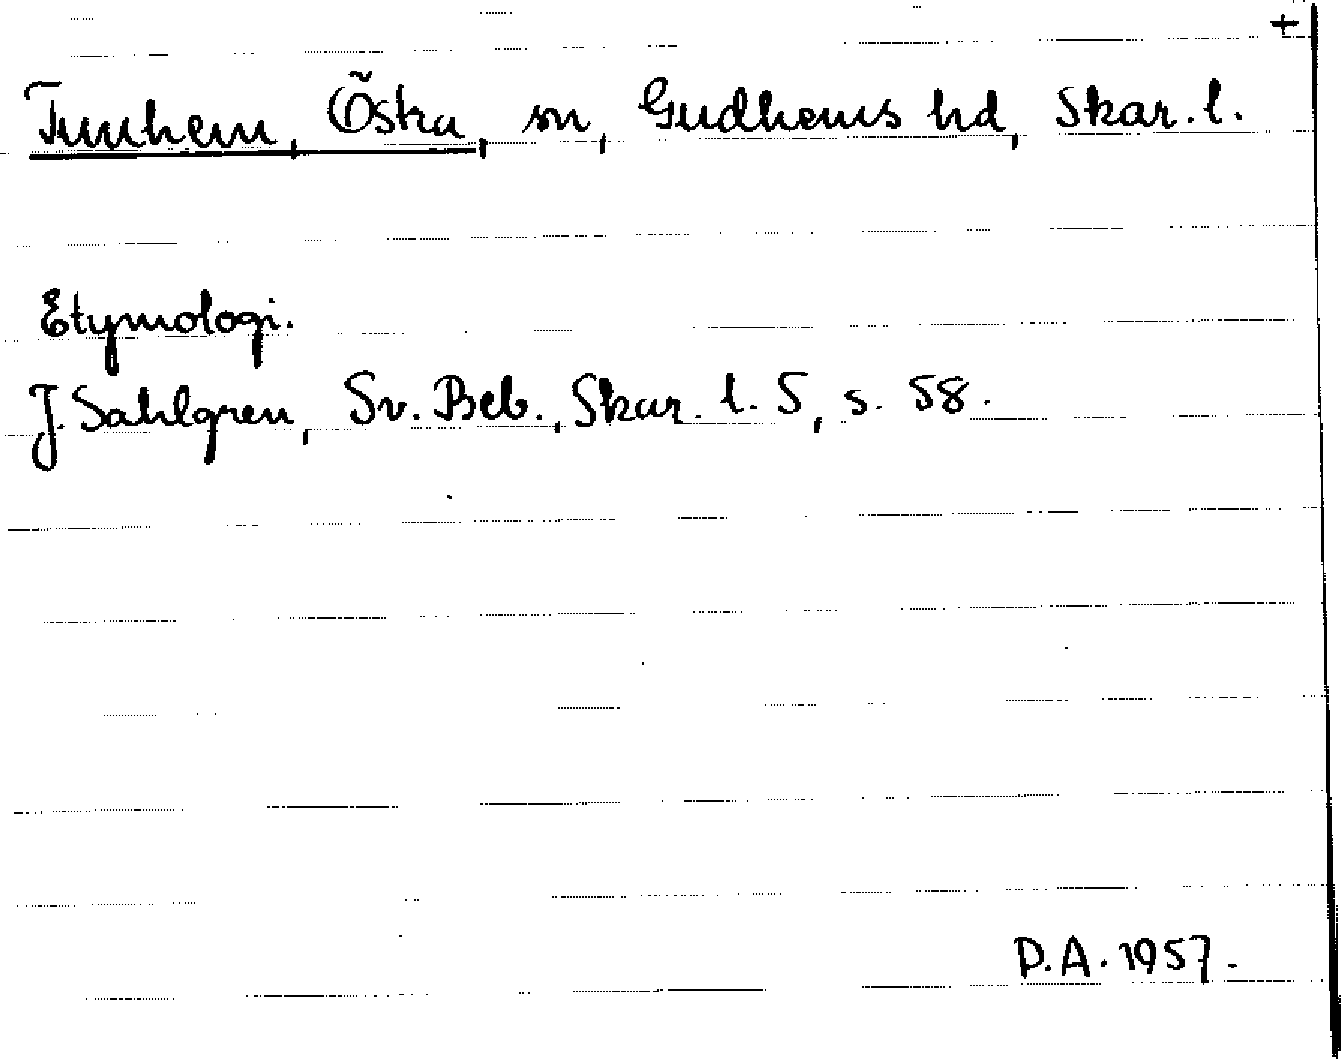 +
Tunhem, Östra, sn, Gudhems hd, Skar. l.
Etymologi.
J. Sahlgren, Sv. Beb., Skar. l. 5, s. 58.
P.A. 1957.